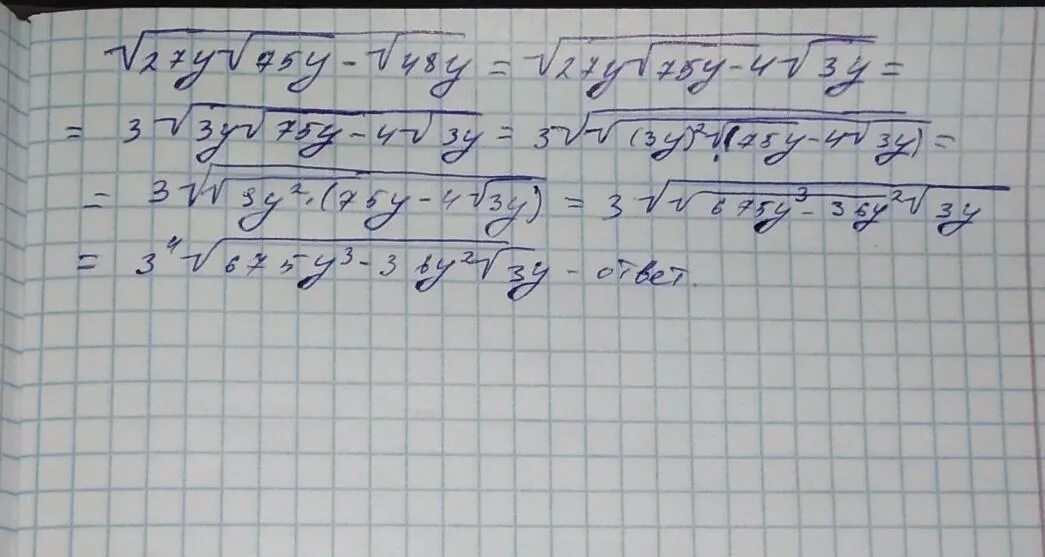 √27y√75y - √48y = √27y√75y-4√3y =
= 3√3y√75y-4√3y = 3√√(3y)²·(75y-4√3y) =
= 3√√9y²·(75y-4√3y) = 3√√675y³-36y²√3y
= 3⁴√675y³-36y²√3y - ответ.